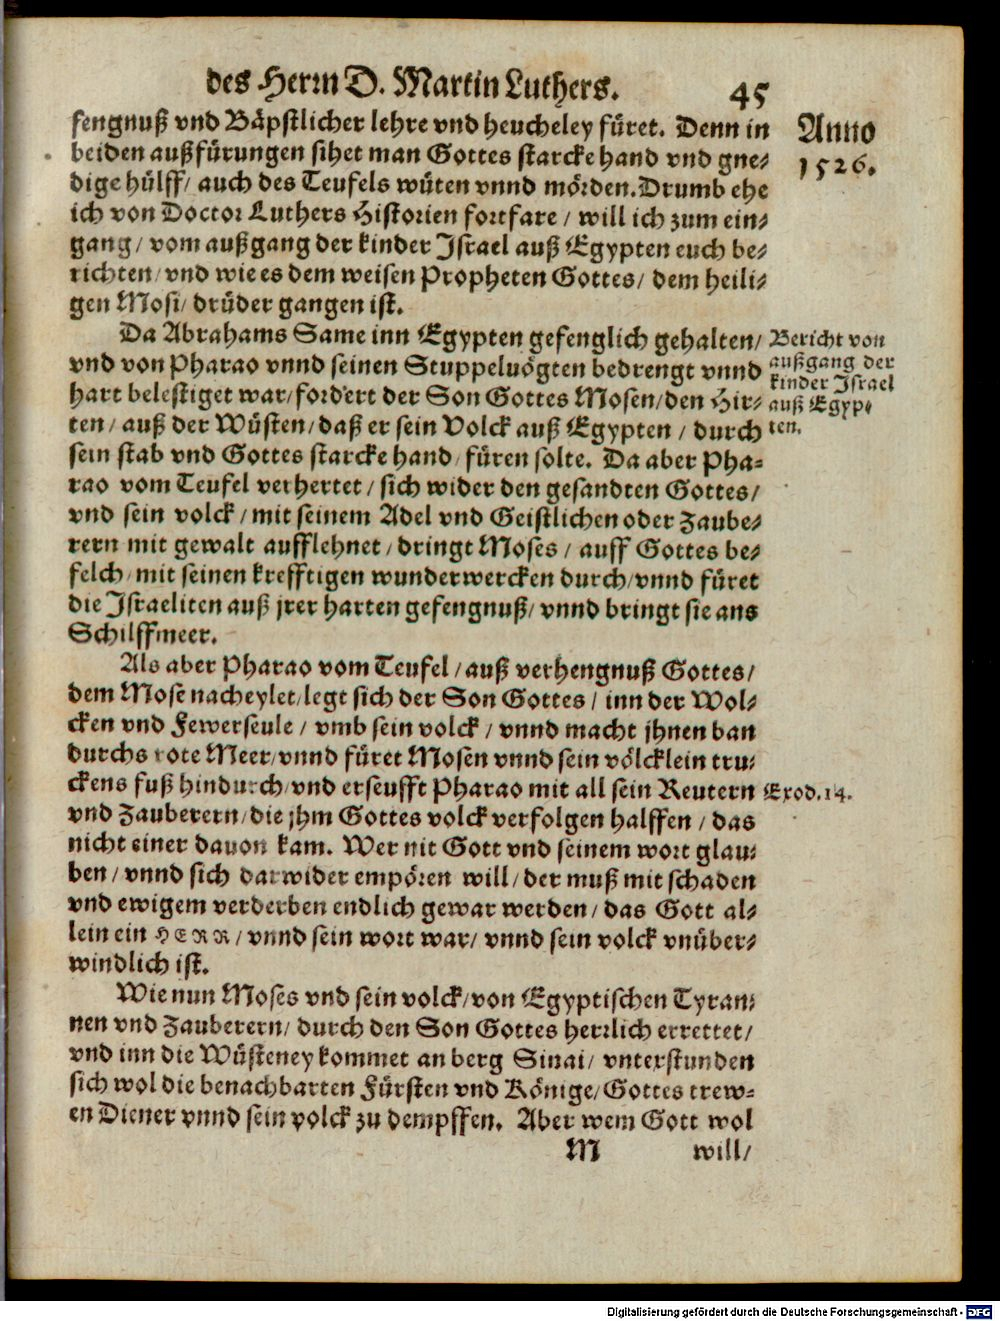 des Herrn D. Martin Luthers. 45
fengnuß vnd Bäpstlicher lehre vnd heucheley füret. Denn in
beiden außfürungen sihet man Gottes starcke hand vnd gne⸗
dige hülff/ auch des Teufels wüten vnnd mörden. Drumb ehe
ich von Doctor Luthers Historien fortfare / will ich zum ein⸗
gang/ vom außgang der kinder Israel auß Egypten euch be⸗
richten/ vnd wie es dem weisen Propheten Gottes/ dem heili⸗
gen Mosi/ drüber gangen ist.
Anno
1526.
Da Abrahams Same inn Egypten gefenglich gehalten/
vnd von Pharao vnnd seinen Stuppeluögten bedrengt vnnd
hart belestiget war/ fordert der Son Gottes Mosen/ den Hir⸗
ten/ auß der Wüsten/ daß er sein Volck auß Egypten / durch
sein stab vnd Gottes starcke hand/ füren solte. Da aber Pha⸗
rao vom Teufel verhertet / sich wider den gesandten Gottes/
vnd sein volck / mit seinem Adel vnd Geistlichen oder Zaube⸗
rern mit gewalt aufflehnet / dringt Moses / auff Gottes be⸗
felch/ mit seinen krefftigen wunderwercken durch/ vnnd füret
die Israeliten auß jrer harten gefengnuß/ vnnd bringt sie ans
Schilffmeer.
Bericht von
außgang der
kinder Israel
auß Egyp⸗
ten.
Als aber Pharao vom Teufel / auß verhengnuß Gottes/
dem Mose nacheylet/ legt sich der Son Gottes / inn der Wol⸗
cken vnd Fewerseule / vmb sein volck / vnnd macht jhnen ban
durchs rote Meer/ vnnd füret Mosen vnnd sein völcklein tru⸗
ckens fuß hindurch/ vnd erseufft Pharao mit all sein Reutern
vnd Zauberern/ die jhm Gottes volck verfolgen halffen / das
nicht einer dauon kam. Wer nit Gott vnd seinem wort glau⸗
ben / vnnd sich darwider empören will / der muß mit schaden
vnd ewigem verderben endlich gewar werden / das Gott al⸗
lein ein HERR / vnnd sein wort war/ vnnd sein volck vnüber⸗
windlich ist.
Exod. 14.
Wie nun Moses vnd sein volck/ von Egyptischen Tyran⸗
nen vnd Zauberern/ durch den Son Gottes herrlich errettet/
vnd inn die Wüsteney kommet an berg Sinai/ vnterstunden
sich wol die benachbarten Fürsten vnd Könige/ Gottes trew⸗
en Diener vnnd sein volck zu dempffen. Aber wem Gott wol
M will/
Digitalisierung gefördert durch die Deutsche Forschungsgemeinschaft - DFG